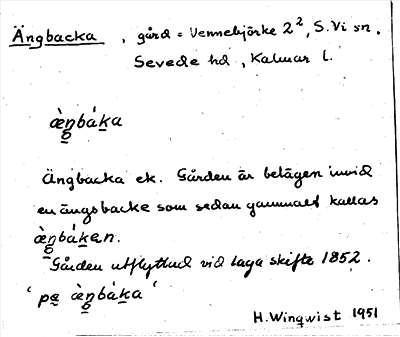 Ängbacka , gård = Vennebjörke 2², S. Vi sn.
Sevede hd , Kalmar l.
æ̀ŋbáka
Ängbacka ek. Gården är belägen invid
en ängsbacke som sedan gammalt kallas
æ̀ŋbákan.
Gården utflyttad vid laga skifte 1852.
‘ pa æ̀ŋbáka ‘
H. Winqwist 1951